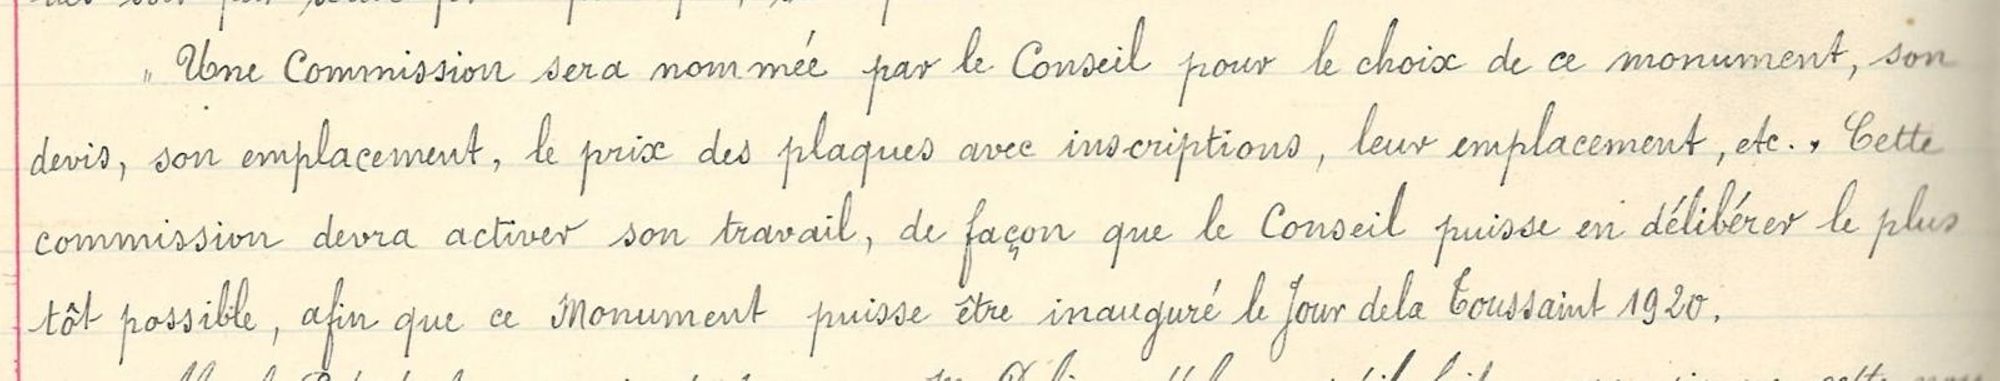 " Une Commission sera nommée par le Conseil pour le choix de ce monument, son
devis, son emplacement, le prix des plaques avec inscriptions, leur emplacement, etc.. Cette
commission devra activer son travail, de façon que le Conseil puisse en délibérer le plus
tôt possible, afin que ce Monument puisse être inauguré le Jour dela Toussaint 1920.